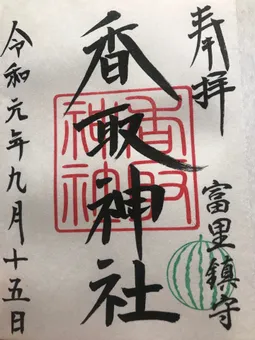 奉拝
富里鎮守
香取神社
香取神社
令和元年九月十五日